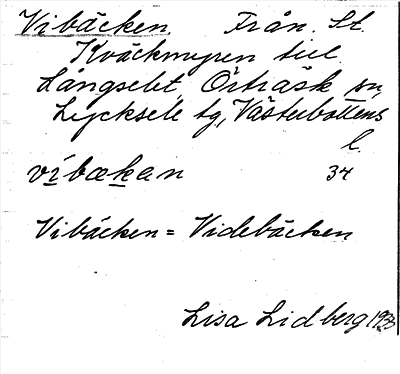 Vibäcken. Från St.
Kväckmyren till
Långselet Örträsk sn,
Lycksele tg, Västerbottens
l.
vibækan 34
Vibäcken = Videbäcken
Lisa Lidberg